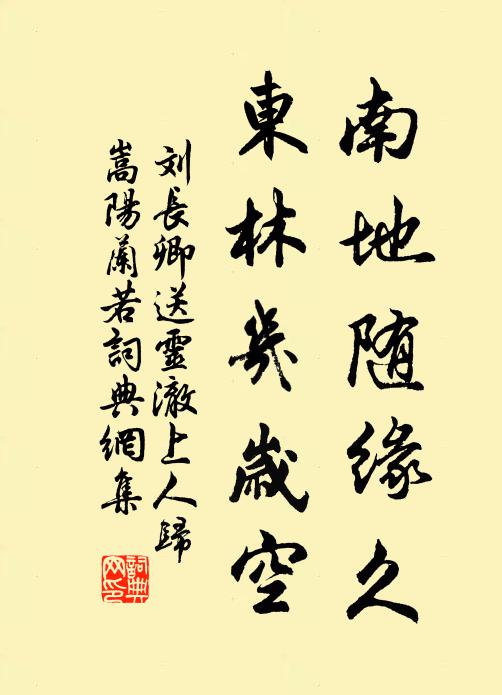 南地随缘久
東林幾歲空
刘長卿送靈澈上人歸
嵩陽蘭若詞典網集
詞典
网印